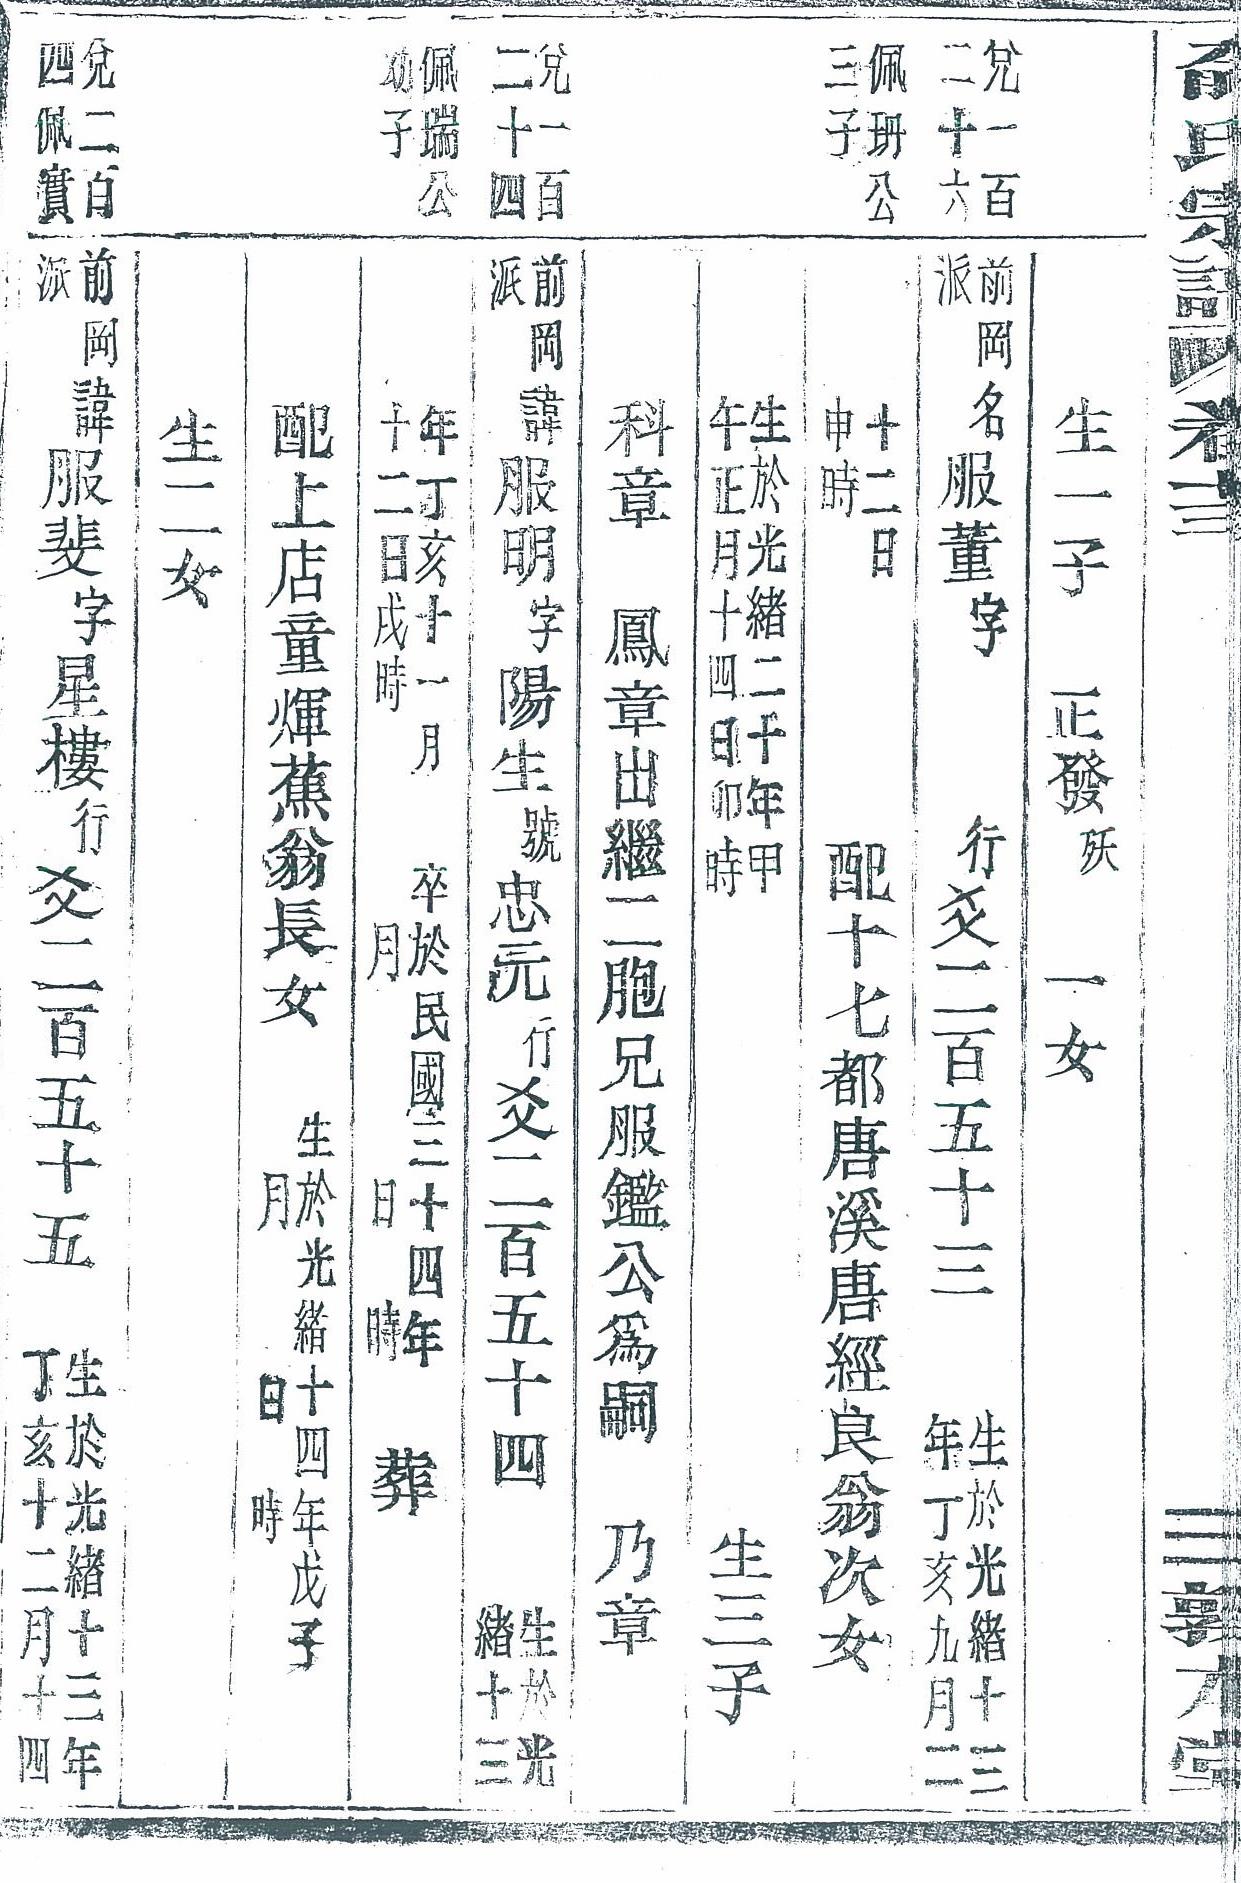 氏宗譜 卷十三 三 敦本堂
生一子 正發 殀 一女
兌一百二十六
前岡派 名服董 字 行爻二百五十三 生於光緒十三年丁亥九月二
佩珊公三子
十二日申時 配十七都唐溪唐經良翁次女
生於光緒二十年甲午正月十四日卯時 生三子
科章 鳳章出繼二胞兄服鑑公爲嗣 乃章
兌一百二十四
前岡派 諱服明 字陽生 號忠元 行爻二百五十四 生於光緒十三
佩瑞公幼子
年丁亥十一月十二日戌時 卒於民國三十四年 月 日 時 葬
配上店童輝蕉翁長女 生於光緒十四年戊子 月 日 時
生二女
兌二百四佩實
前岡派 諱服斐 字星樓 行爻二百五十五 生於光緒十三年丁亥十二月十四